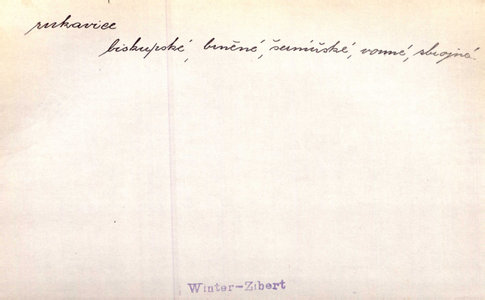 rukavice
biskupské, brněné, šermířské, vonné, zbrojné
Winter-Zíbert